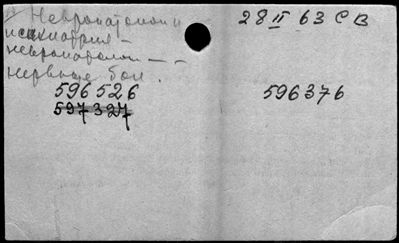 Невропатологи и
психиатрия —
невропатолог — —
нервные бол.
596 526
597 327
28 II 63 СВ
596376